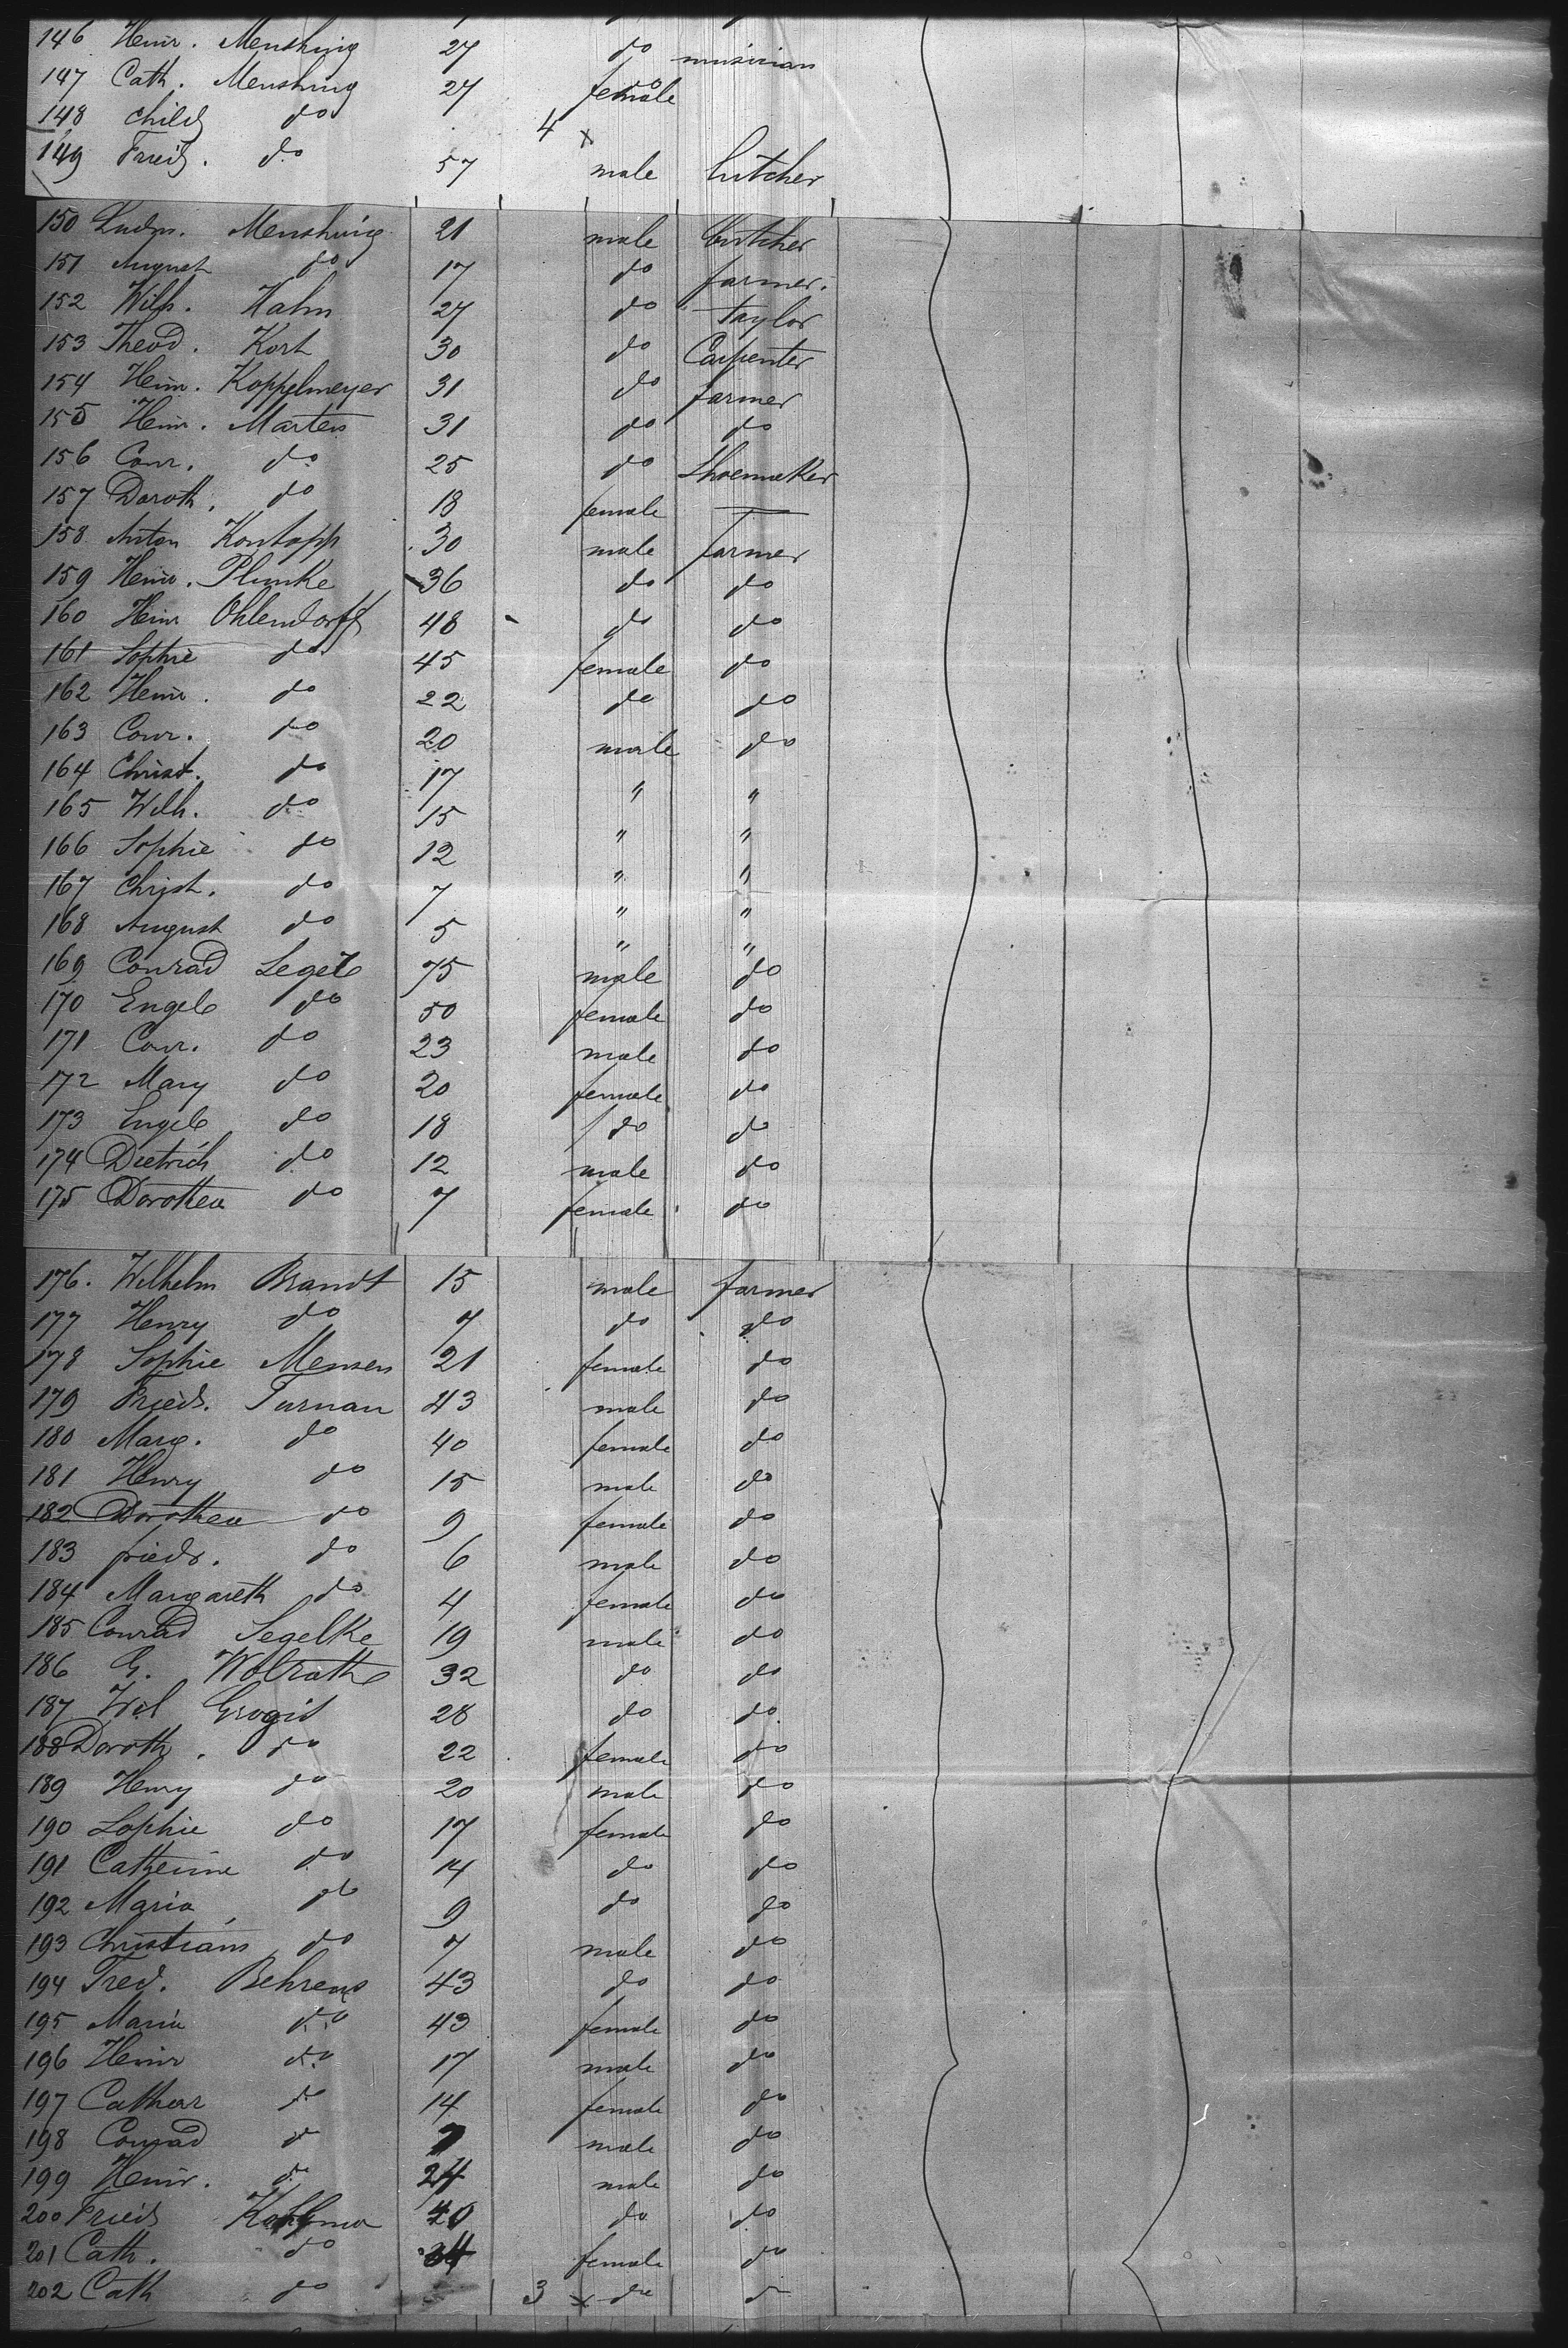 146 Heinr. Menshing 27 do musician
147 Cath. Menshing 27 female
148 child do 4
149 Fried. do 57 male butcher
150 Ludw. Menshing 21 male butcher
151 August do 17 do farmer.
152 Wilh. Hahn 27 do taylor
153 Theod. Kort 30 do Carpenter
154 Heinr. Koppelmeyer 31 do farmer
155 Heinr. Martens 31 do do
156 Conr. do 25 do Shoemaker
157 Doroth. do 18 female —
158 Anton Kontopp 30 male farmer
159 Heinr. Plinke 36 do do
160 Heinr Ohlendorff 48 do do
161 Sophie do 45 female do
162 Heinr. do 22 do do
163 Conr. do 20 male do
164 Christ. do 17 " "
165 Wilh. do 15 " "
166 Sophie do 12 " "
167 Christ. do 7 " "
168 August do 5 " "
169 Conrad 75 male do
170 Engel do 50 female do
171 Conr. do 23 male do
172 Mary do 20 female do
173 Engel do 18 do do
174 Dietrich do 12 male do
175 Dorothea do 7 female do
176. Wilhelm Brandt 15 male farmer
177 Henry do 7 do do
178 Sophie Mensen 21 female do
179 Frieds. Turnau 43 male do
180 Marg. do 40 female do
181 Henry do 15 male do
182 Dorothea do 9 female do
183 friedr. do 6 male do
184 Margareth do 4 female do
185 Conrad Segelke 19 male do
186 G. Wolrath 32 do do
187 Wil 28 do do
188 Doroth. do 22 female do
189 Henry do 20 male do
190 Sophie do 17 female do
191 Catherine do 14 do do
192 Maria do 9 do do
193 Christians do 7 male do
194 Fred. Behrens 43 do do
195 Maria do 43 female do
196 Heinr do 17 male do
197 Cathar do 14 female do
198 Conrad do 7 male do
199 Heinr. do 24 male do
200 Frieds 40 do do
201 Cath. do 34 female do
202 Cath do 3 do do